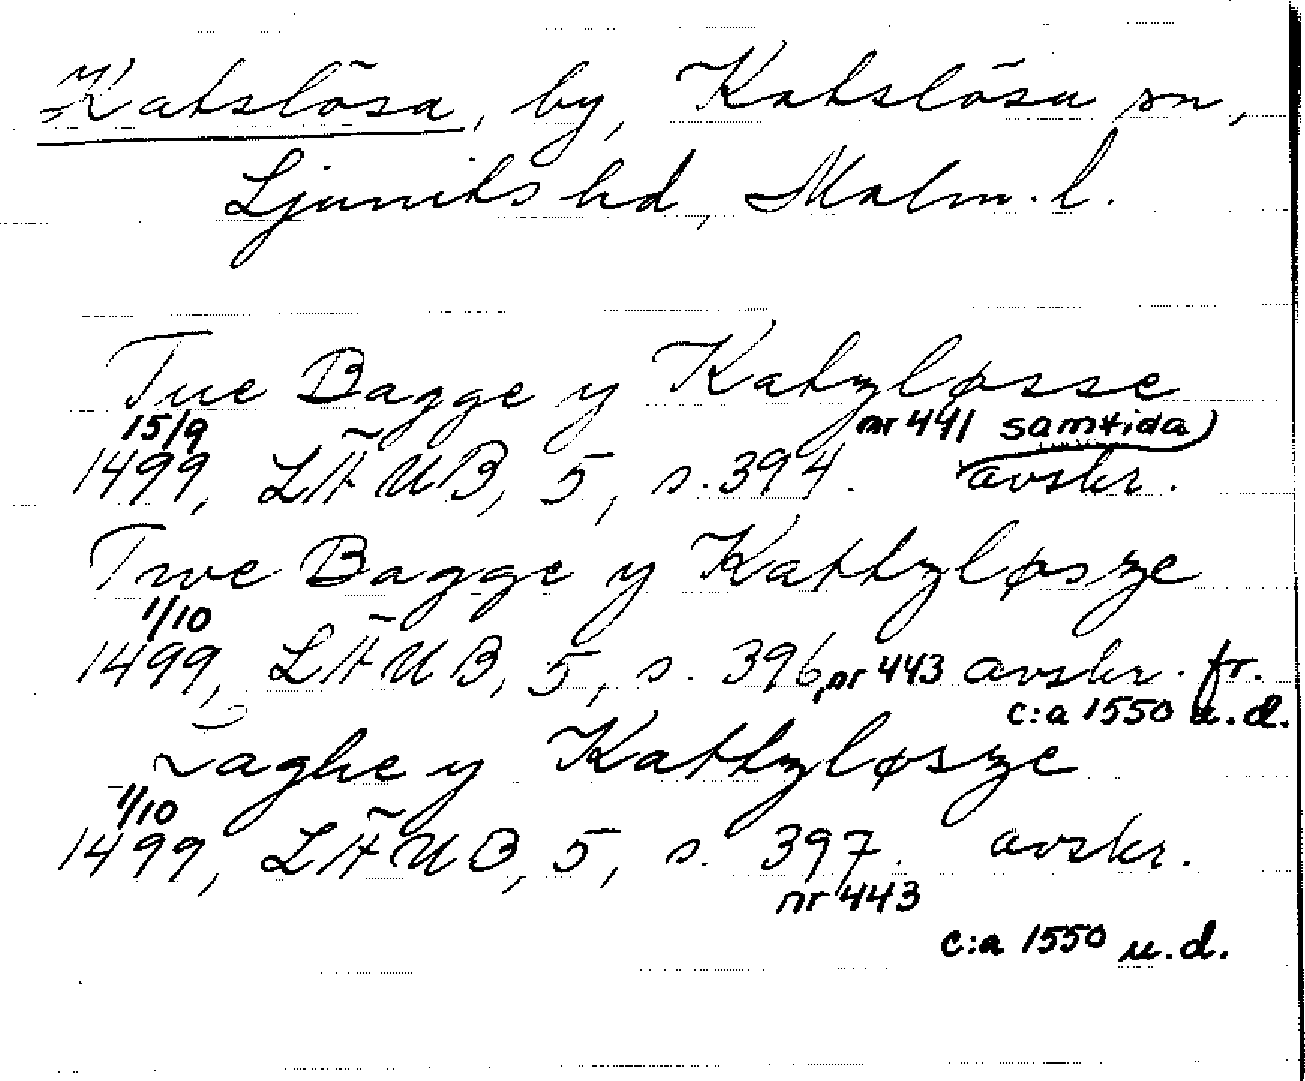 Katslösa, by, Katslösa sn,
Ljunits hd, Malm. l.
Tue Bagge y Katzløsse
15/9 nr 441 samtida
1499, LÄUB, 5, s. 394. avskr.
Twe Bagge y Kattzløsze
1/10
1499, LÄUB, 5, s. 396, nr 443 avskr. fr.
c:a 1550 u.d.
Laghe y Kattzløsze
1/10
1499, LÄUB, 5, s. 397. avskr.
nr 443
c:a 1550 u.d.